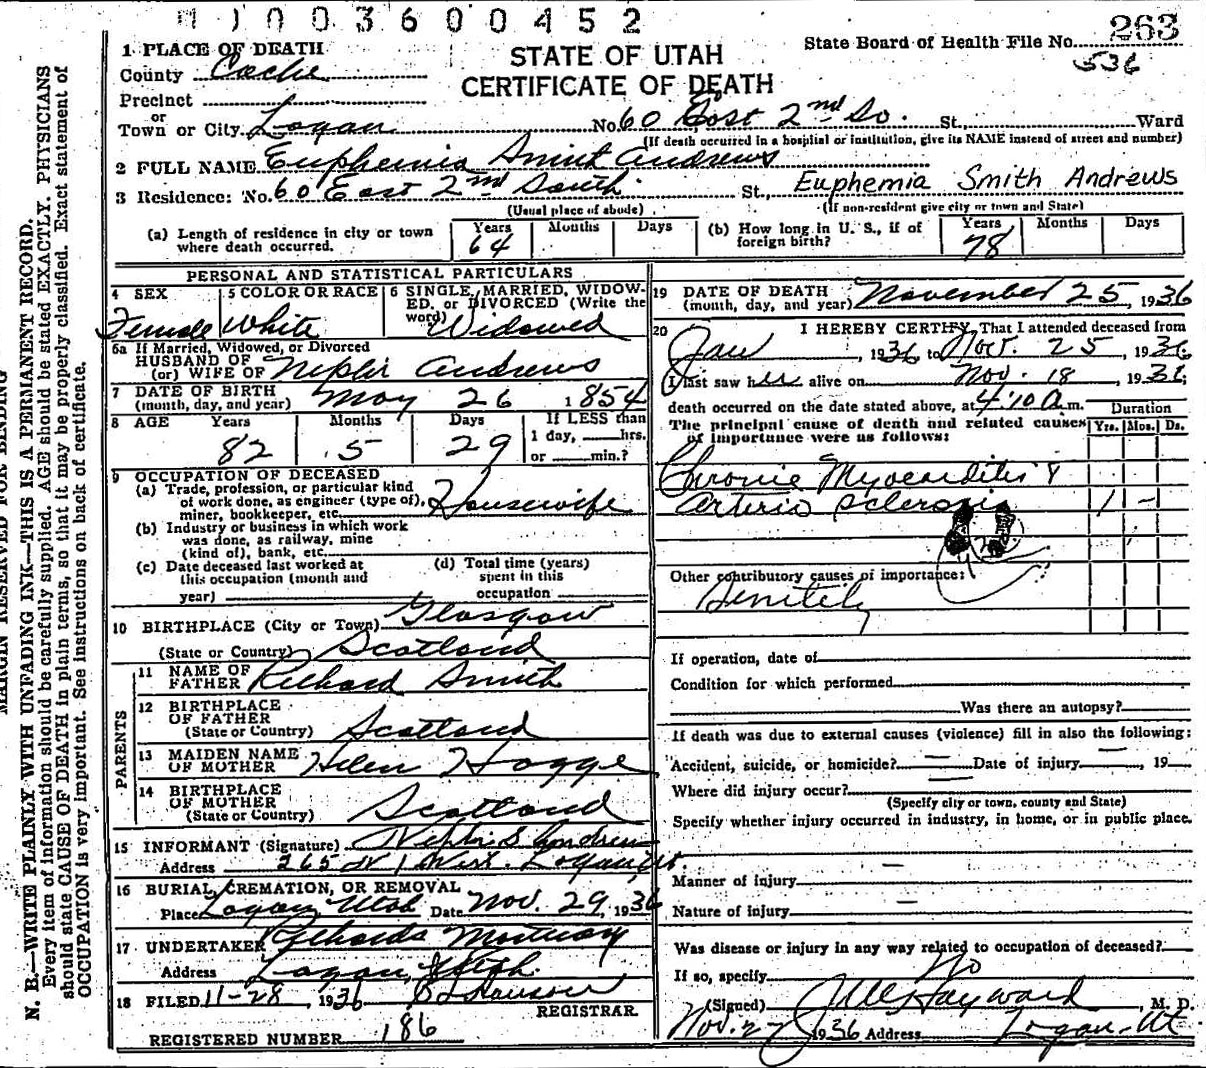 003600452
263
536
State Board of Health File No.
STATE OF UTAH
CERTIFICATE OF DEATH
1 PLACE OF DEATH
County Cache
Precinct
or
Town or City Logan No. 60 East 2nd So. St. Ward
(If death occurred in a hospital or institution, give its NAME instead of street and number)
2 FULL NAME Euphemia Smith Andrews
3 Residence: No. 60 East 2nd South St., Euphemia Smith Andrews
(Usual place of abode) (If non-resident give city or town and State)
(a) Length of residence in city or town where death occurred. Years 64 Months Days
(b) How long in U. S., if of foreign birth? Years 78 Months Days
PERSONAL AND STATISTICAL PARTICULARS
4 SEX Female
5 COLOR OR RACE White
6 SINGLE, MARRIED, WIDOWED, or DIVORCED (Write the word) Widowed
6a If Married, Widowed, or Divorced
HUSBAND OF
(or) WIFE OF Nephi Andrews
7 DATE OF BIRTH
(month, day, and year) May 26 1854
8 AGE Years 82 Months 5 Days 29
If LESS than
1 day, hrs.
or min.?
9 OCCUPATION OF DECEASED
(a) Trade, profession, or particular kind
of work done, as engineer (type of),
miner, bookkeeper, etc. Housewife
(b) Industry or business in which work
was done, as railway, mine
(kind of), bank, etc.
(c) Date deceased last worked at
this occupation (month and
year)
(d) Total time (years)
spent in this
occupation
10 BIRTHPLACE (City or Town) Glasgow
(State or Country) Scotland
PARENTS
11 NAME OF
FATHER Richard Smith
12 BIRTHPLACE
OF FATHER
(State or Country) Scotland
13 MAIDEN NAME
OF MOTHER Helen Hogge
14 BIRTHPLACE
OF MOTHER
(State or Country) Scotland
15 INFORMANT (Signature) Nephi S Andrews
Address 265 N 1 West. Logan, Ut
16 BURIAL, CREMATION, OR REMOVAL
Place Logan, Utah Date Nov. 29, 1936
17 UNDERTAKER Mortuary
Address Logan, Utah.
18 FILED 11-28, 1936
REGISTRAR
REGISTERED NUMBER 186
19 DATE OF DEATH
(month, day, and year) November 25, 1936
20 I HEREBY CERTIFY, That I attended deceased from
Jan, 1936 to Nov. 25, 1936
I last saw her alive on Nov. 18, 1936;
death occurred on the date stated above, at 4:10 a m.
Duration
The principal cause of death and related causes
of importance were as follows: Yrs. Mos. Ds.
Chronic Myocarditis &
Arterio Sclerosis 1 -
Other contributory causes of importance:
Senility
If operation, date of
Condition for which performed
Was there an autopsy?
If death was due to external causes (violence) fill in also the following:
Accident, suicide, or homicide? Date of injury, 19
Where did injury occur?
(Specify city or town, county and State)
Specify whether injury occurred in industry, in home, or in public place.
Manner of injury
Nature of injury
Was disease or injury in any way related to occupation of deceased?
If so, specify No
(Signed) Hayward, M. D.
Nov. 27 1936 Address Logan - Ut
MARGIN RESERVED FOR BINDING
N. B.—WRITE PLAINLY WITH UNFADING INK—THIS IS A PERMANENT RECORD.
Every item of information should be carefully supplied. AGE should be stated EXACTLY. PHYSICIANS
should state CAUSE OF DEATH in plain terms, so that it may be properly classified. Exact statement of
OCCUPATION is very important. See instructions on back of certificate.